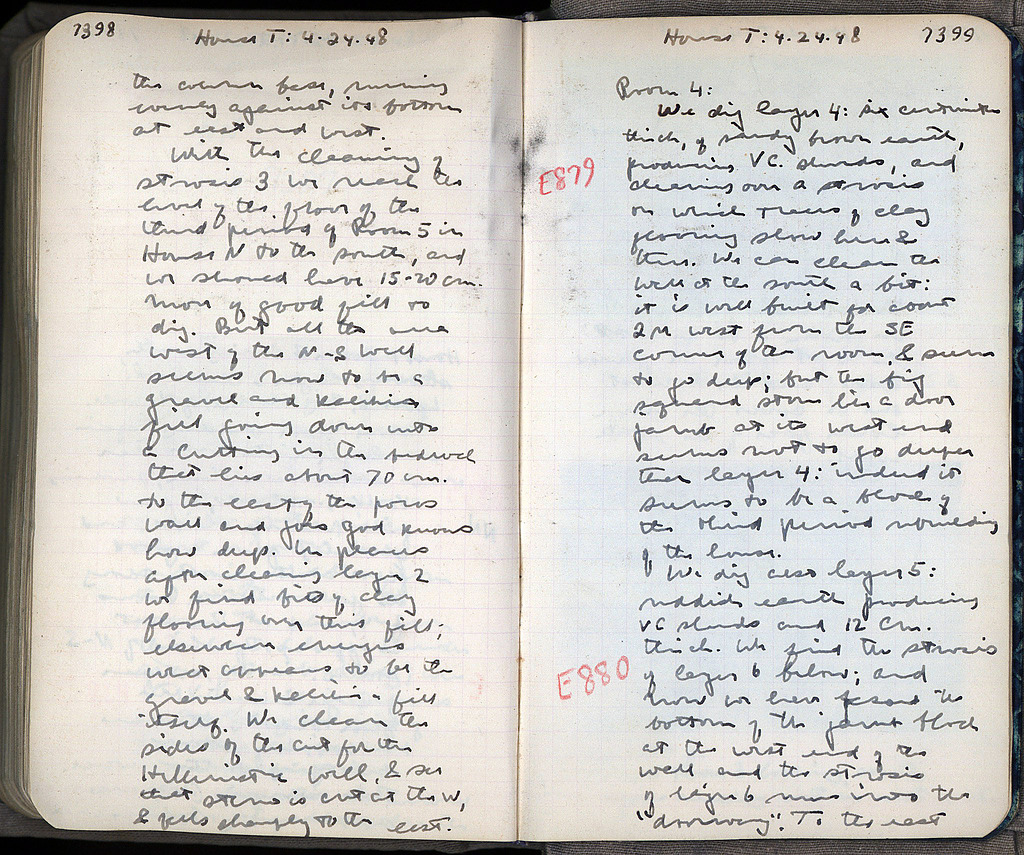 7398
House T: 4.24.48
the column base, running
evenly against its bottom
at east and west.
With the cleaning of
strosis 3 we reach the
level of the floor of the
third period of Room 5 in
House N to the south, and
we should have 15-20 cm.
more of good fill to
dig. But all the area
west of the N-S wall
seems now to be a
gravel and kalichia
fill going down into
a cutting in the bedrock
that lies about 70 cm.
to the east of the poros
wall and goes god knows
how deep. In places
after cleaning layer 2
we find bits of clay
flooring over this fill;
elsewhere emerges
what appears to be the
gravel & kalichia fill
itself. We clean the
sides of the cut for the
Hellenistic wall, & see
that stereo is cut at the W,
& falls sharply to the east.
House T: 4.24.48
7399
Room 4:
We dig layer 4: six centimeters
thick, of sandy brown earth,
E879
producing VC. sherds, and
cleaning over a strosis
on which traces of clay
flooring show here &
there. We can clean the
wall at the south a bit:
it is well built for about
2 M west from the SE
corner of the room, & seems
to go deep; but the big
squared stone like a door
jamb at its west end
seems not to go deeper
than layer 4: indeed it
seems to be a block of
the third period rebuilding
of the house.
We dig also layer 5:
reddish earth producing
VC sherds and 12 cm.
thick. We find the strosis
E880
of layer 6 below; and
now we have found the
bottom of the jamb block
at the west end of the
wall and the strosis
of layer 6 runs into the
"doorway". To the east